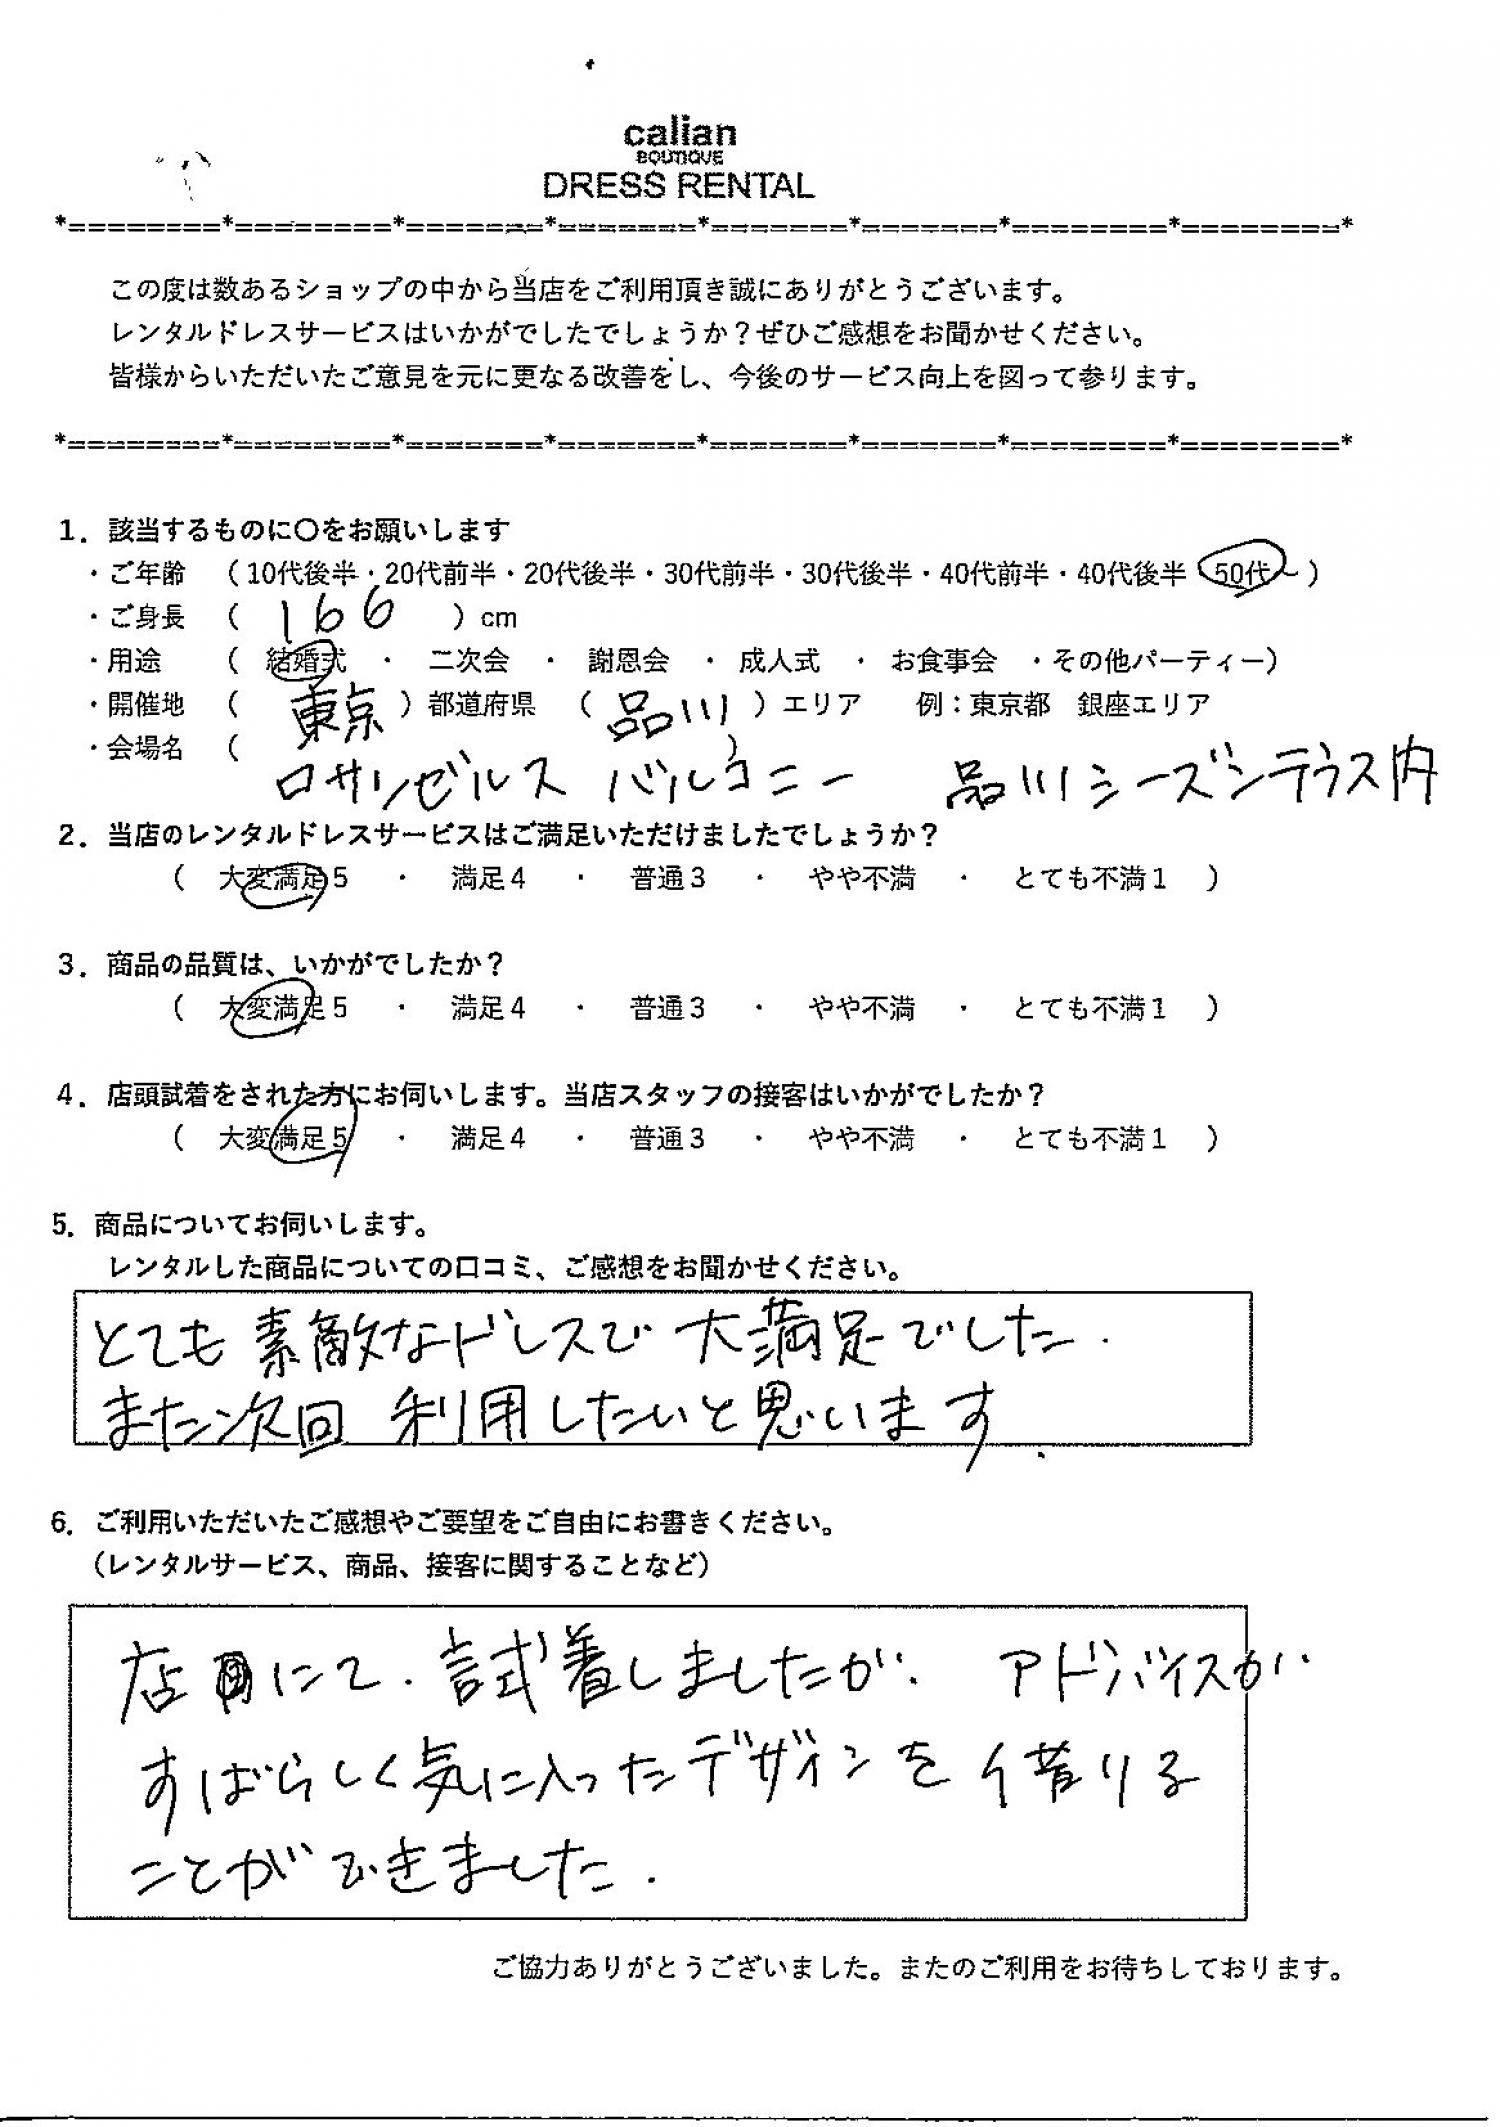 calian
BOUTIQUE
DRESS RENTAL
*========*========*=======*=======*=======*=======*========*========*
この度は数あるショップの中から当店をご利用頂き誠にありがとうございます。
レンタルドレスサービスはいかがでしたでしょうか？ぜひご感想をお聞かせください。
皆様からいただいたご意見を元に更なる改善をし、今後のサービス向上を図って参ります。
*========*========*=======*=======*=======*=======*========*========*
1．該当するものに〇をお願いします
・ご年齢　（10代後半・20代前半・20代後半・30代前半・30代後半・40代前半・40代後半・50代～）
・ご身長　（ 166 ）cm
・用途　（ 結婚式 ・ 二次会 ・ 謝恩会 ・ 成人式 ・ お食事会 ・その他パーティー）
・開催地　（ 東京 ）都道府県　（ 品川 ）エリア　例：東京都　銀座エリア
・会場名　（　）
ロサンゼルス バルコニー　品川シーズンテラス内
2．当店のレンタルドレスサービスはご満足いただけましたでしょうか？
（ 大変満足5 ・ 満足4 ・ 普通3 ・ やや不満 ・ とても不満1 ）
3．商品の品質は、いかがでしたか？
（ 大変満足5 ・ 満足4 ・ 普通3 ・ やや不満 ・ とても不満1 ）
4．店頭試着をされた方にお伺いします。当店スタッフの接客はいかがでしたか？
（ 大変満足5 ・ 満足4 ・ 普通3 ・ やや不満 ・ とても不満1 ）
5．商品についてお伺いします。
レンタルした商品についての口コミ、ご感想をお聞かせください。
とても素敵なドレスで大満足でした.
また次回 利用したいと思います.
6．ご利用いただいたご感想やご要望をご自由にお書きください。
（レンタルサービス、商品、接客に関することなど）
店内にて.試着しましたが. アドバイスが
すばらしく気に入ったデザインを借りる
ことができました.
ご協力ありがとうございました。またのご利用をお待ちしております。